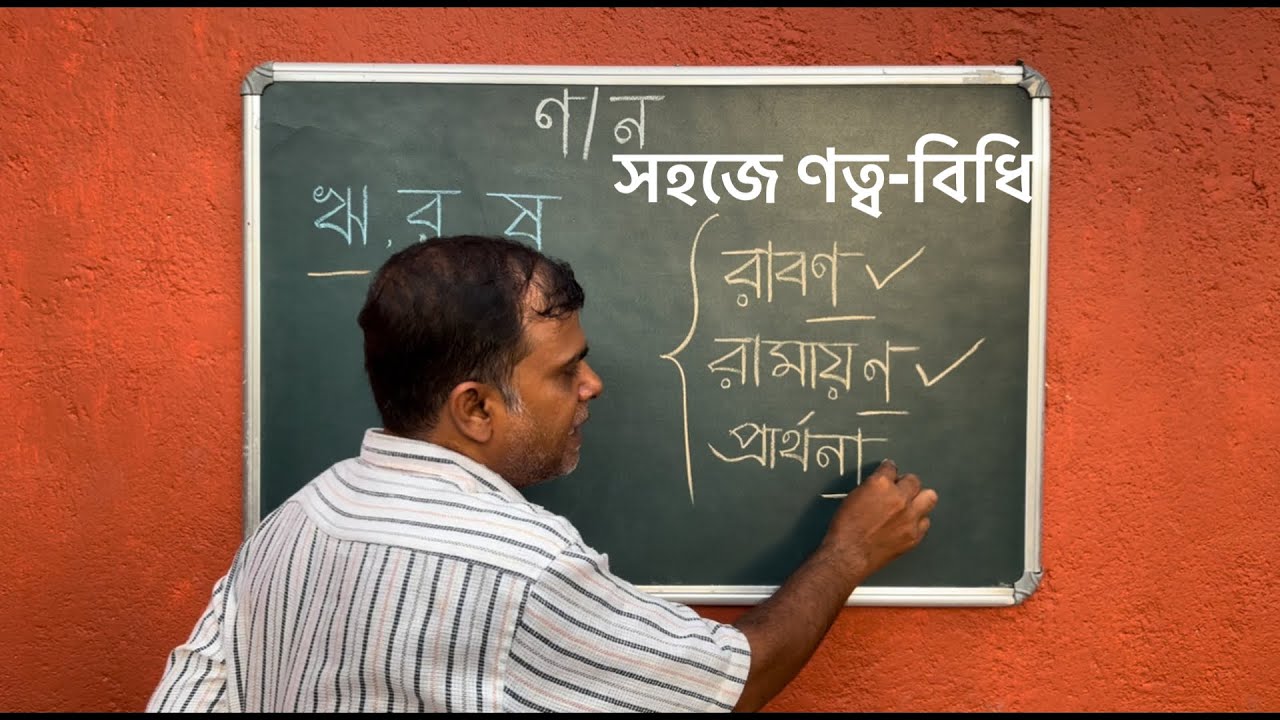 ণ/ন
সহজে ণত্ব-বিধি
ঋ, র ষ
রাবণ ✓
রামায়ণ ✓
প্রার্থনা